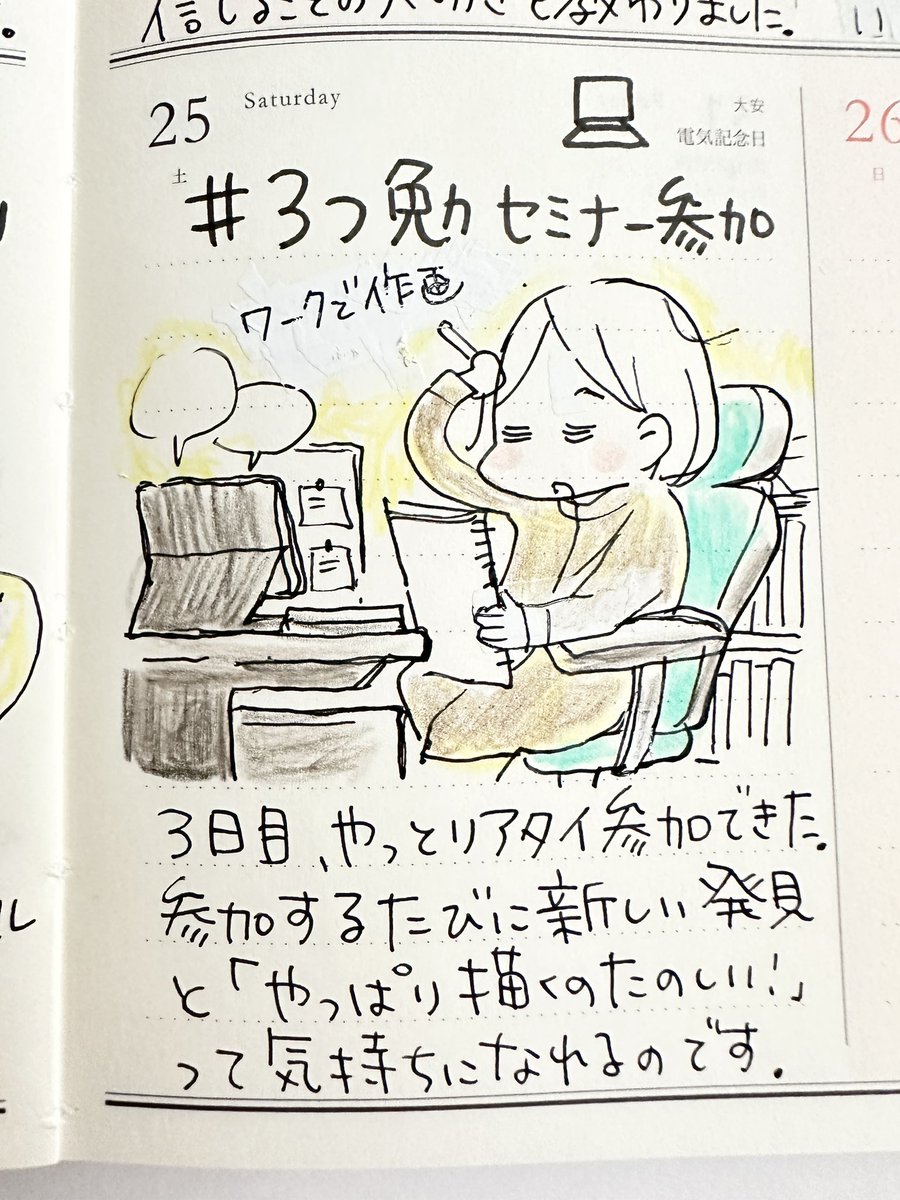 25 Saturday
大安
電気記念日
土
26
日
#3つ勉 セミナー参加
ワークで作画
3日目、やっとリアタイ参加できた.
参加するたびに新しい発見
と「やっぱり描くのたのしい!」
って気持ちになれるのです.